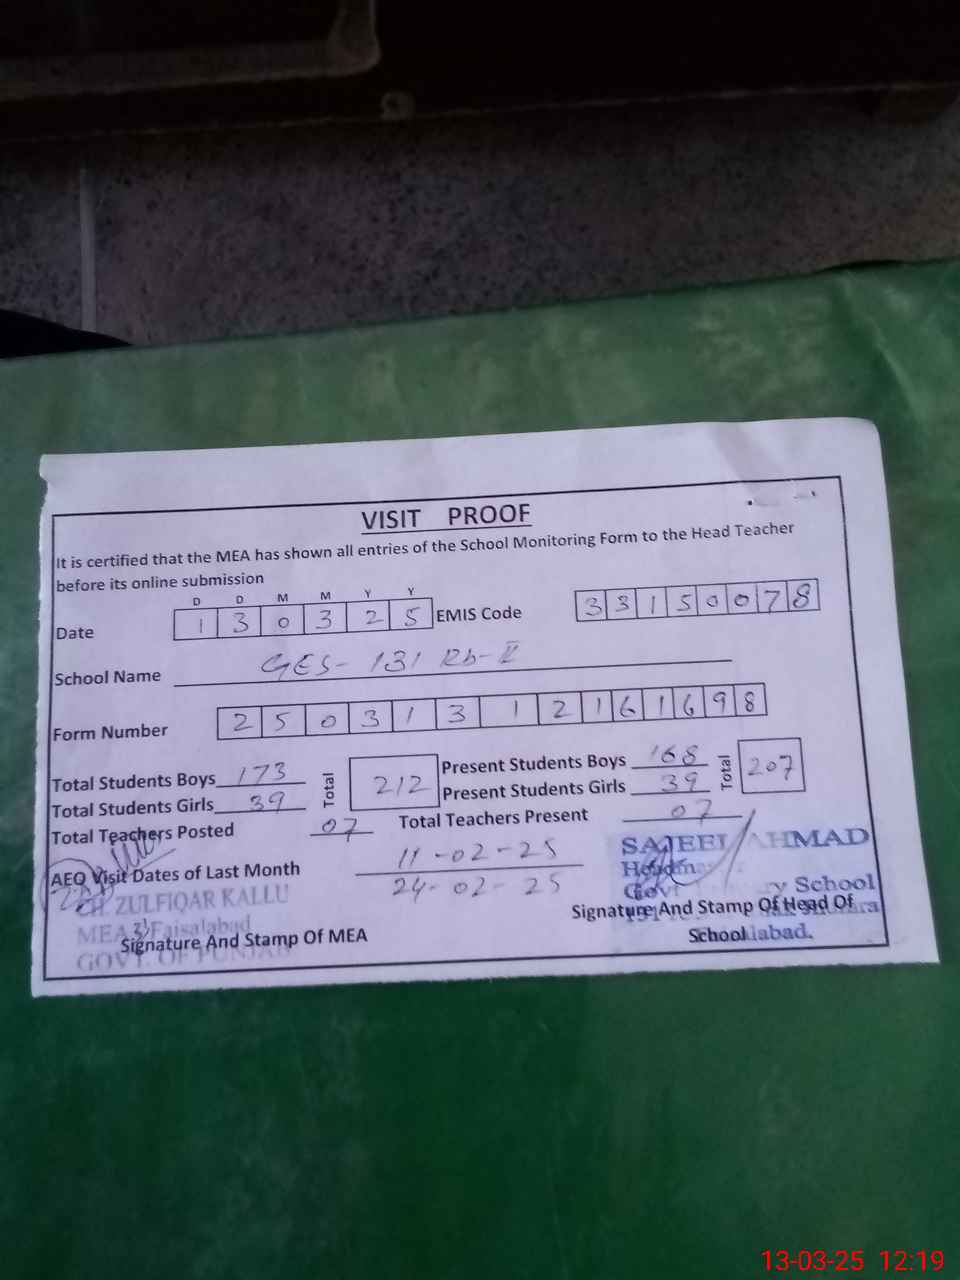 VISIT PROOF
It is certified that the MEA has shown all entries of the School Monitoring Form to the Head Teacher
before its online submission
D D M M Y Y
Date 1 3 0 3 2 5 EMIS Code 3 3 1 5 0 0 7 8
School Name GES- 131 Rb-II
Form Number 2 5 0 3 1 3 1 2 1 6 1 6 9 8
Total Students Boys 173 Total 212 Present Students Boys 168 Total 207
Total Students Girls 39 Present Students Girls 39
Total Teachers Posted 07 Total Teachers Present 07
AEO Visit Dates of Last Month 11-02-25
24-02-25
SAJEEL AHMAD
School
CH. ZULFIQAR KALLU
MEA 31 Faisalabad
GOVT. OF PUNJAB
Signature And Stamp Of MEA
Signature And Stamp Of Head Of
School
13-03-25 12:19